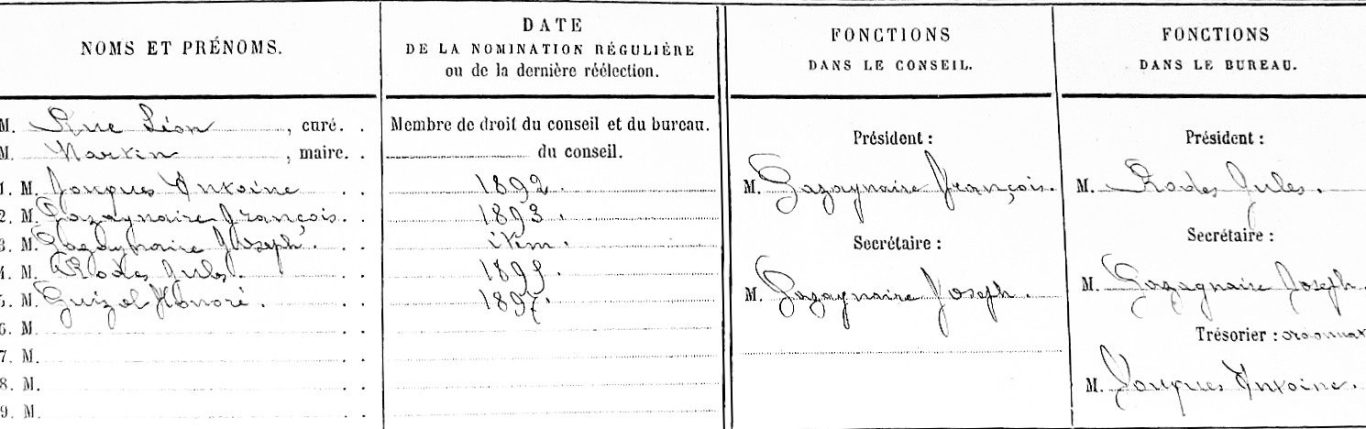 NOMS ET PRÉNOMS.
DATE
DE LA NOMINATION RÉGULIÈRE
ou de la dernière réélection.
FONCTIONS
DANS LE CONSEIL.
FONCTIONS
DANS LE BUREAU.
M. Rue Léon, curé.
Membre de droit du conseil et du bureau.
M. Martin, maire.
du conseil.
1. M. Jouques Antoine
1892.
2. M. Gazagnaire François.
1893.
3. M. Gazagnaire Joseph.
item.
4. M. Rodes Jules.
5. M. Guizol Honoré.
1897.
6. M
7. M.
8. M.
9. M.
Président :
M. Gazagnaire François.
Secrétaire :
M. Gazagnaire Joseph.
Président :
M. Rodes Jules.
Secrétaire :
M. Gazagnaire Joseph.
Trésorier :
M. Jouques Antoine.